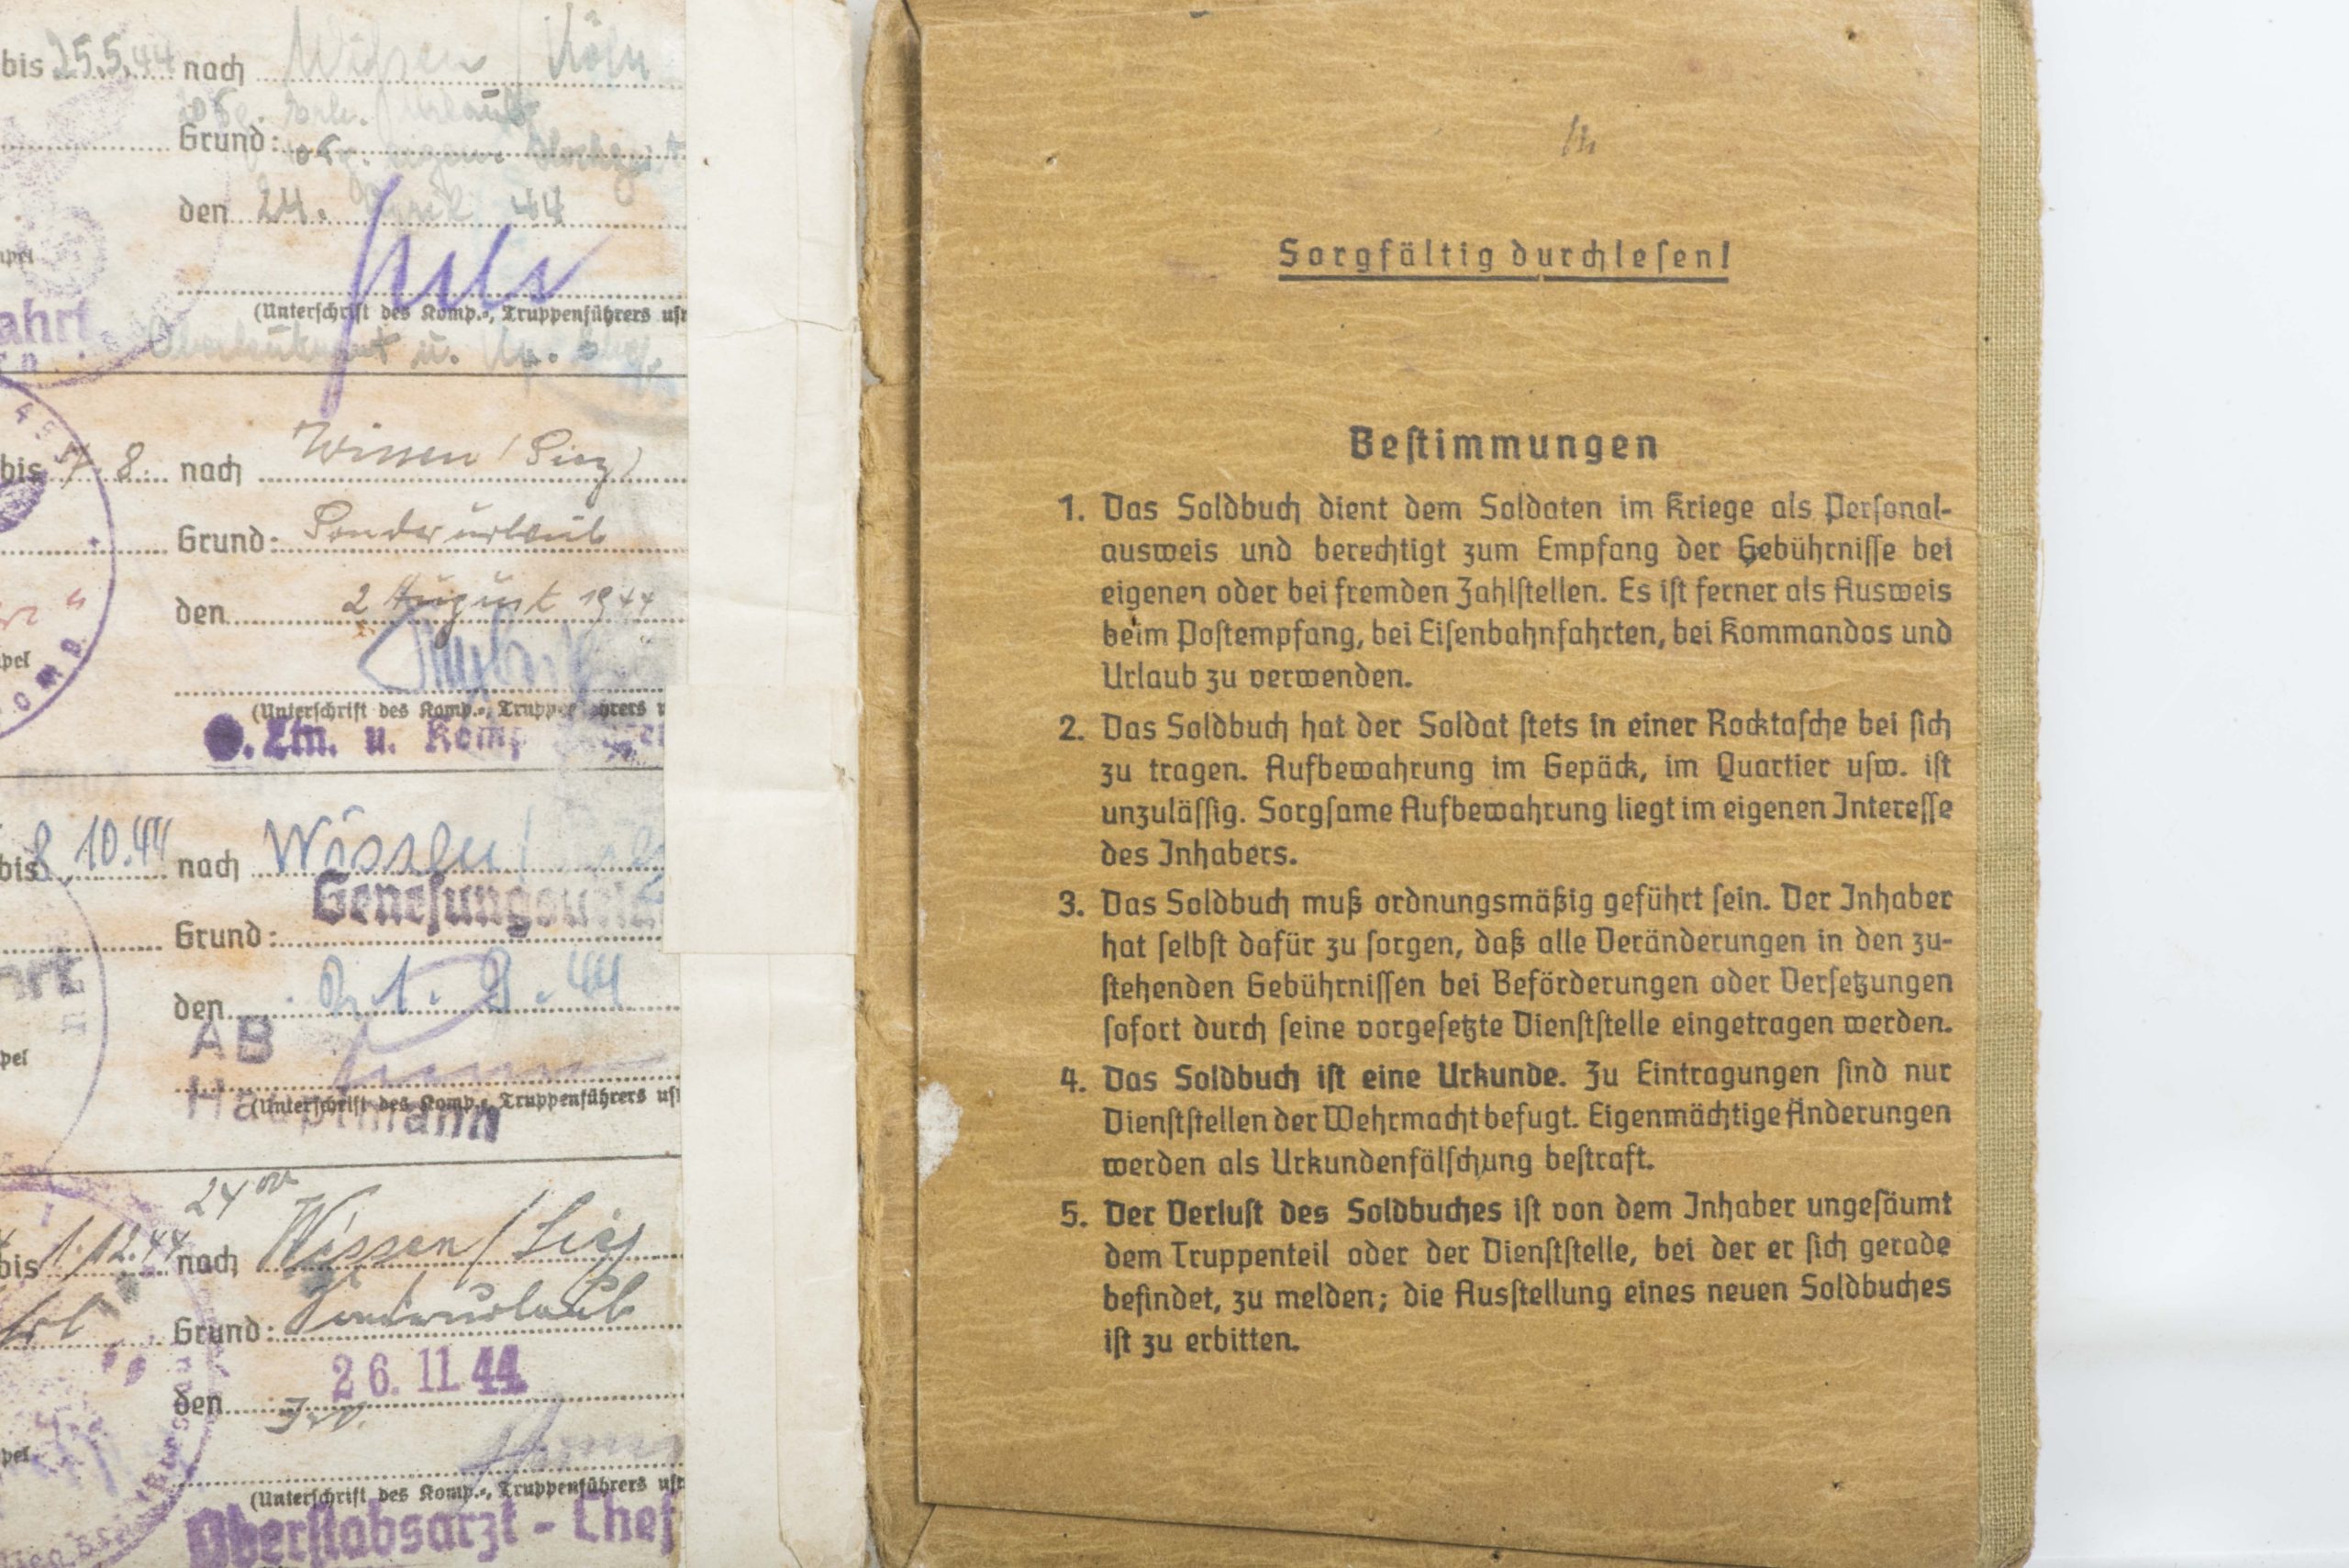 bis 25.5.44 nach / Köln
Grund: Urlaub
den 24. 44
(Unterschrift des Komp.-, Truppenführers usw
bis 8. nach Wissen / Sieg
Grund: Sonderurlaub
den 2 August 1944
pel
(Unterschrift des Komp.-, Truppenführers
u. Komp
bis 8.10.44 nach
Grund:
den 9.44
AB
pel
(Unterschrift des Komp.-, Truppenführers usw
Hauptmann
24
bis 1.12.44 nach Wissen / Sieg
Grund: Sonderurlaub
26.11.44
den
pel
(Unterschrift des Komp.-, Truppenführers usw
Oberstabsarzt - Chef
Sorgfältig durchlesen!
Bestimmungen
1. Das Soldbuch dient dem Soldaten im Kriege als Personal-
ausweis und berechtigt zum Empfang der Gebührnisse bei
eigenen oder bei fremden Zahlstellen. Es ist ferner als Ausweis
beim Postempfang, bei Eisenbahnfahrten, bei Kommandos und
Urlaub zu verwenden.
2. Das Soldbuch hat der Soldat stets in einer Rocktasche bei sich
zu tragen. Aufbewahrung im Gepäck, im Quartier usw. ist
unzulässig. Sorgsame Aufbewahrung liegt im eigenen Interesse
des Inhabers.
3. Das Soldbuch muß ordnungsmäßig geführt sein. Der Inhaber
hat selbst dafür zu sorgen, daß alle Veränderungen in den zu-
stehenden Gebührnissen bei Beförderungen oder Versetzungen
sofort durch seine vorgesetzte Dienststelle eingetragen werden.
4. Das Soldbuch ist eine Urkunde. Zu Eintragungen sind nur
Dienststellen der Wehrmacht befugt. Eigenmächtige Änderungen
werden als Urkundenfälschung bestraft.
5. Der Verlust des Soldbuches ist von dem Inhaber ungesäumt
dem Truppenteil oder der Dienststelle, bei der er sich gerade
befindet, zu melden; die Ausstellung eines neuen Soldbuches
ist zu erbitten.